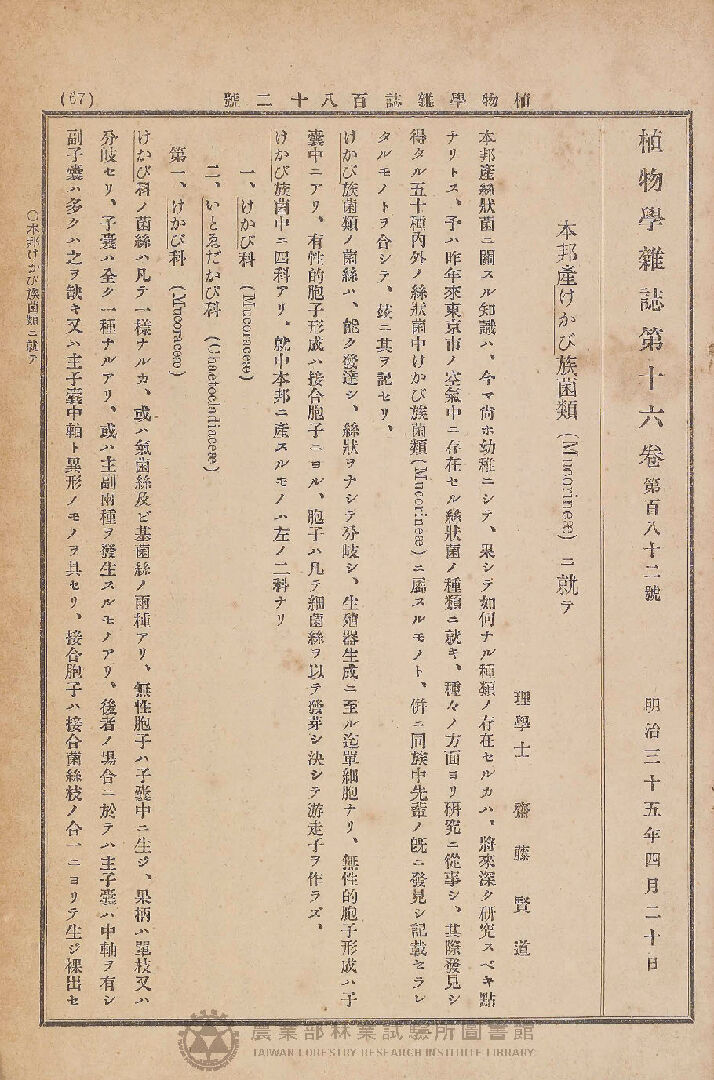 植物學雜誌百八十二號
(67)
植物學雜誌第十六卷 第百八十二號 明治三十五年四月二十日
本邦產けかび族菌類(Mucorineæ)ニ就テ
理學士 齋藤賢道
本邦產絲狀菌ニ關スル知識ハ、今マ尙ホ幼稚ニシテ、果シテ如何ナル種類ノ存在セルカハ、將來深ク研究スベキ點
ナリトス、予ハ昨年來東京市ノ空氣中ニ存在セル絲狀菌ノ種類ニ就キ、種々ノ方面ヨリ研究ニ從事シ、其際發見シ
得タル五十種內外ノ絲狀菌中けかび族菌類(Mucorineæ)ニ屬スルモノト、併ニ同族中先輩ノ既ニ發見シ記載セラレ
タルモノトヲ合シテ、玆ニ其ヲ記セリ、
けかび族菌類ノ菌絲ハ、能ク發達シ、絲狀ヲナシテ分岐シ、生殖器生成ニ至ル迄單細胞ナリ、無性的胞子形成ハ子
囊中ニアリ、有性的胞子形成ハ接合胞子ニヨル、胞子ハ凡テ細菌絲ヲ以テ發芽シ決シテ游走子ヲ作ラズ、
けかび族菌中ニ四科アリ、就中本邦ニ產スルモノハ左ノ二科ナリ
一、けかび科 (Mucoraceæ)
二、いとゑだかび科 (Chaetocladiaceæ)
第一、けかび科 (Mucoraceæ)
けかび科ノ菌絲ハ凡テ一樣ナルカ、或ハ氣菌絲及ビ基菌絲ノ兩種アリ、無性胞子ハ子囊中ニ生ジ、果柄ハ單枝又ハ
分岐セリ、子囊ハ全ク一種ナルアリ、或ハ主副兩種ヲ發生スルモノアリ、後者ノ場合ニ於テハ主子囊ハ中軸ヲ有シ
副子囊ハ多クハ之ヲ缺キ又ハ主子囊中軸ト異形ノモノヲ具セリ、接合胞子ハ接合菌絲枝ノ合一ニヨリテ生ジ裸出セ
〇本邦けかび族菌類ニ就テ
農業部林業試驗所圖書館
TAIWAN FORESTRY RESEARCH INSTITUTE LIBRARY